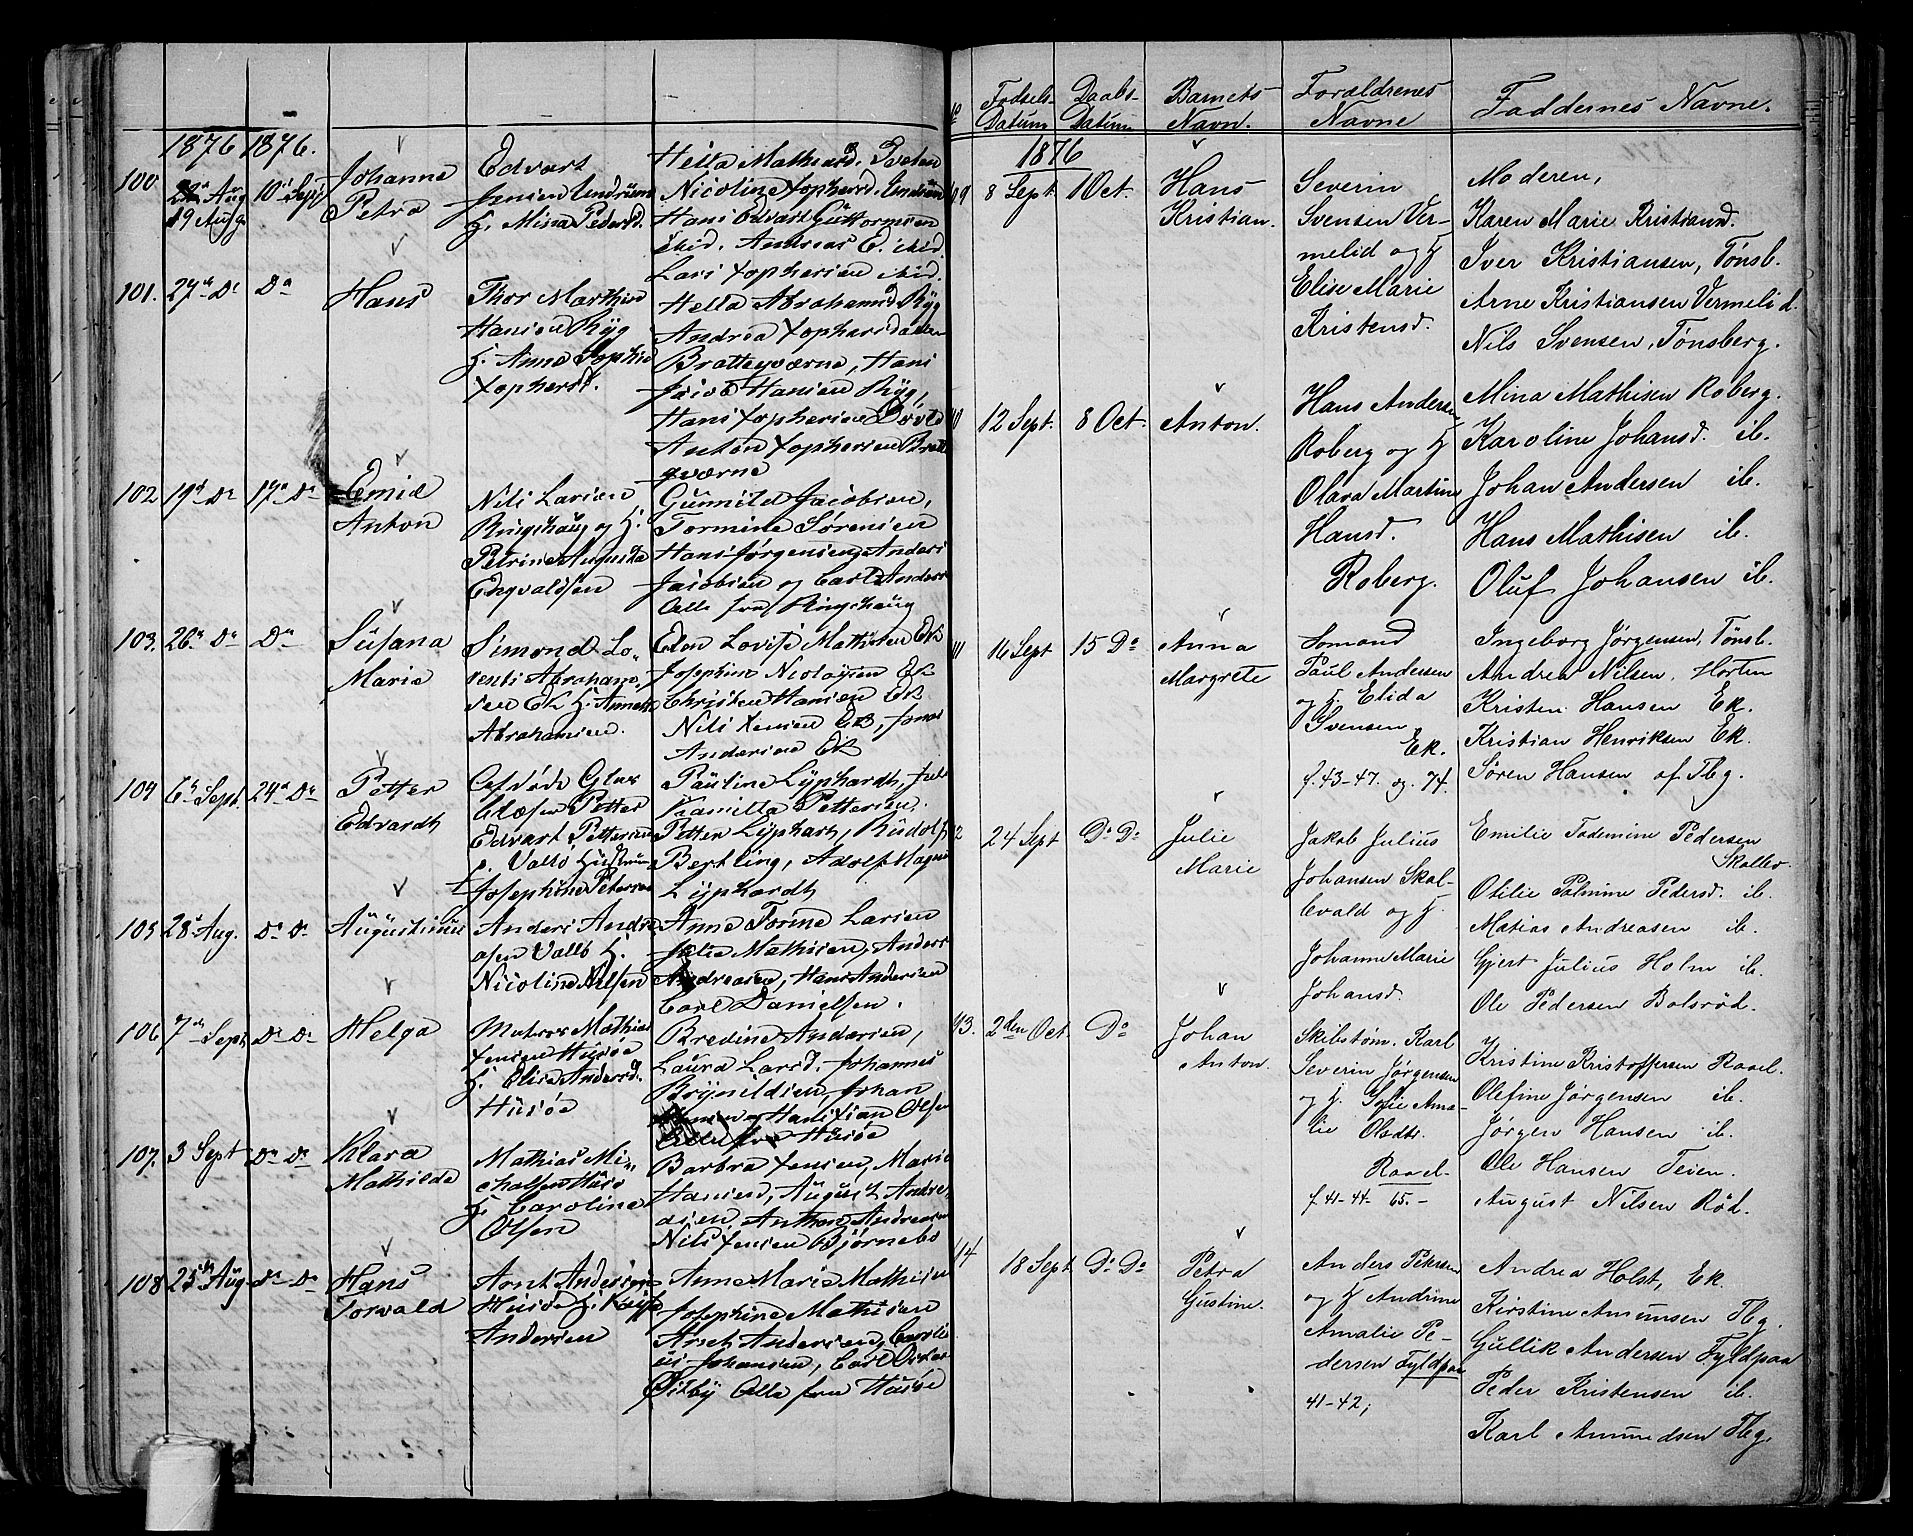 1876 1876.
100 19 Aug 10de Sept Johanne Petra
Edvart
Jensen Lindrum
H. Mina Pedersd.
Hella Mathisd. Tveten
Nicoline Xophersd. Lindrum
Hans Edvart Guttormsen
ibid. Andreas E. ibid.
Lars Xophersen ibid.
101. 27de Do Do Hans
Thor Marthin
Hansen Ryg
H. Anne Sophie
Xophersd.
Hella Abrahamsd Ryg
Andrea Xophersdatter
Bratteqværne, Hans
Jacob Hansen Ryg,
Hans Xophersen
Anton Xophersen Bratte
qværne
102 19de Do 17de Do Emil
Anton
Nils Larsen
Ringshaug og H.
Petrine Augusta
Engvaldsen
Gunnild Jacobsen,
Tormine Sørensen
Hans Jørgensen, Anders
Jacobsen og Carl Anders
Alle fra Ringshaug
103. 26de Do Do Susana
Marie
Simond Lo-
rents Abraham-
sen Ek H. Annette
Abrahamsen.
Elen Lovise Mathisen Ek
Josephine Nicolaysen Ek
Christen Hansen Ek
Nils Jensen Ek, Jonas
Andersen Ek
104 6te Sept. 24de Do Petter
Edvardt
Afdøde Glas
Petter
Edvart Pettersen
p. Vallø Hustru
Josephine Petersen
Pauline Lyphardt, Jul
Kamilla Pettersen.
Petter Lyphart, Rudolf
Bertling, Adolf Magnus
Lyphardt
105 28de Aug. Do Do Augustinus
Anders Andre
asen Vallø H.
Nicoline Nilsen
Anne Torine Larsen
Julie Mathisen, Anders
Andreasen, Hans Andersen
Carl Danielsen.
106 7de Sept Do Do Helga
Matros Mathias
Jensen Husøe
H. Elise Andersd.
Husøe
Bredine Andersen,
Laura Larsd. Johannes
Brynildsen, Johan
Hansen og Hans Kristian Olsen
Alle fra Husøe
107. 3 Sept Do Do Klara
Mathilde
Mathias Mi-
chalsen Husø
H. Caroline
Olsen
Barbra Jensen, Marie
Hansend, August Andre-
asen, Anthon Andreasen
Nils Jensen Bjørnebo
108 25de Aug. Do Do Hans
Torvald
Arnt Andersen
Husøe H. Kaisa
Andersen
Anne Marie Mathisen
Josephine Mathisen
Arnt Andersen, Carli
us Johansen, Carl Oskar
Østby Alle fra Husøe
No Fødsels- Datum
Daabs- Datum
Barnets Navn.
Forældrenes Navne
Faddernes Navne.
1876
09 8 Sept 1 Oct. Hans
Kristian.
Severin
Svensen Ver-
melid og H
Elise Marie
Kristensd.
Moderen,
Karen Marie Kristiansd.
Iver Kristiansen, Tønsb.
Arne Kristiansen Vermelid.
Nils Svensen, Tønsberg.
10 12 Sept. 8 Oct. Anton.
Hans Andersen
Roberg og H
Olava Martine
Hansd.
Roberg.
Mina Mathisen Roberg.
Karoline Johansd. ib.
Johan Andersen ib.
Hans Mathisen ib.
Oluf Johansen ib.
11 16 Sept 15 Do Anna
Margrete
Sømand
Paul Andersen
og H. Elida
Svensen
Ek.
f. 43-47. og 74.
Ingeborg Jørgensen, Tønsb.
Andrea Nilsen. Horten
Kristen Hansen Ek.
Kristian Henriksen Ek.
Søren Hansen af Tbg.
12 24 Sept Do Do Julie
Marie
Jakob Julius
Johansen Skal-
levald og H.
Johanne Marie
Johansd.
Emilie Tademine Pedersen
Skallev.
Otilie Palmine Pedersd. ib.
Matias Andreasen ib.
Gjert Julius Holm ib.
Ole Pedersen Bolsrød.
13. 2den Oct. Do Johan
Anton.
Skibstøm. Karl
Severin Jørgensen
og H. Sofie Ama-
lie Olsdtr.
Raael-
f. 41-44- 65.-
Kristine Kristoffersen Raael.
Olefine Jørgensen ib.
Jørgen Hansen ib.
Ole Hansen Teien.
August Nilsen Rød.
114 18 Sept Do Do Petra
Gustine.
Anders Petersen
og H Andrine
Amalie Pe-
dersen Fyldpaa
41-42;
Andrea Holst, Ek
Kirstine Amunsen Tbg.
Gullik Andersen Fyldpaa
Peder Kristensen ib.
Karl Amundsen Tbg.